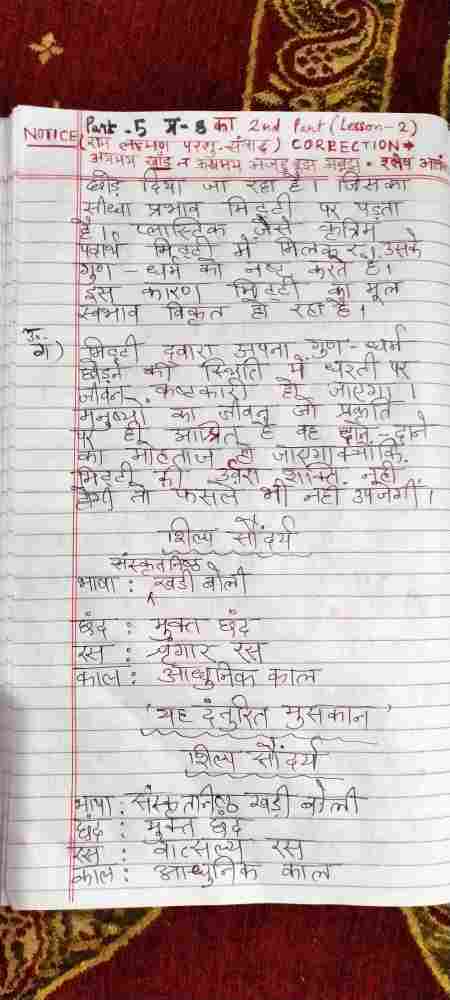 NOTICE
Part-5 प्र-8 का 2nd Part (Lesson-2)
(राम लक्ष्मण परशु-संवाद) CORRECTION→
खाँड़ न ऊखमय अजहुँ न बूझ अबूझ = श्लेष अलं
छोड़ दिया जा रहा है। जिसका
सीधा प्रभाव मिट्टी पर पड़ता
है। प्लास्टिक जैसे कृत्रिम
पदार्थ मिट्टी में मिलकर उसके
गुण-धर्म को नष्ट करते है।
इस कारण मिट्टी का मूल
स्वभाव विकृत हो रहा है।
उ.
ग) मिट्टी दवारा अपना गुण-धर्म
छोड़ने की स्थिति में धरती पर
जीवन कष्टकारी हो जाएगा।
मनुष्यों का जीवन जो प्रकृति
पर ही आश्रित है वह दाने-दाने
का मोहताज हो जाएगा क्योंकि
मिट्टी की उर्वरा शक्ति नही
होगी तो फसलें भी नही उपजेगीं।
शिल्प सौंदर्य
संस्कृतनिष्ठ
भाषा : खड़ी बोली
छंद : मुक्त छंद
रस : श्रृंगार रस
काल : आधुनिक काल
'यह दंतुरित मुसकान'
शिल्प सौंदर्य
भाषा : संस्कृतनिष्ठ खड़ी बोली
छंद : मुक्त छंद
रस : वात्सल्य रस
काल : आधुनिक काल